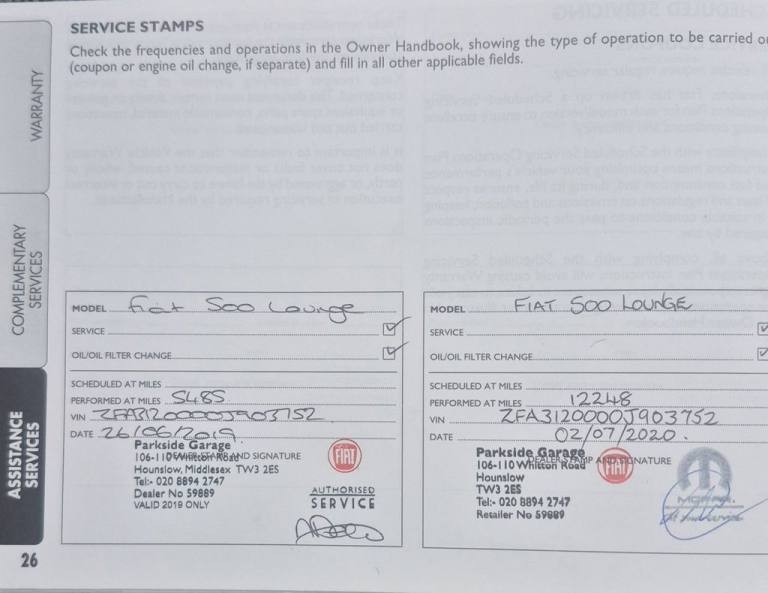 SERVICE STAMPS
Check the frequencies and operations in the Owner Handbook, showing the type of operation to be carried
(coupon or engine oil change, if separate) and fill in all other applicable fields.
WARRANTY
COMPLEMENTARY
SERVICES
ASSISTANCE
SERVICES
26
MODEL Fiat 500 Lounge
SERVICE
OIL/OIL FILTER CHANGE
SCHEDULED AT MILES
PERFORMED AT MILES 5485
VIN ZFA3120000J903752
DATE 26/06/2019
Parkside Garage
106-110 Whitton Road
DEALER STAMP AND SIGNATURE
Hounslow, Middlesex TW3 2ES
Tel:- 020 8894 2747
Dealer No 59889
VALID 2019 ONLY
FIAT
AUTHORISED
SERVICE
MODEL FIAT 500 LOUNGE
SERVICE
OIL/OIL FILTER CHANGE
SCHEDULED AT MILES
PERFORMED AT MILES 12248
VIN ZFA3120000J903752
DATE 02/07/2020.
Parkside Garage
DEALER STAMP AND SIGNATURE
106-110 Whitton Road
Hounslow
TW3 2ES
Tel:- 020 8894 2747
Retailer No 59889
FIAT
MOPAR.